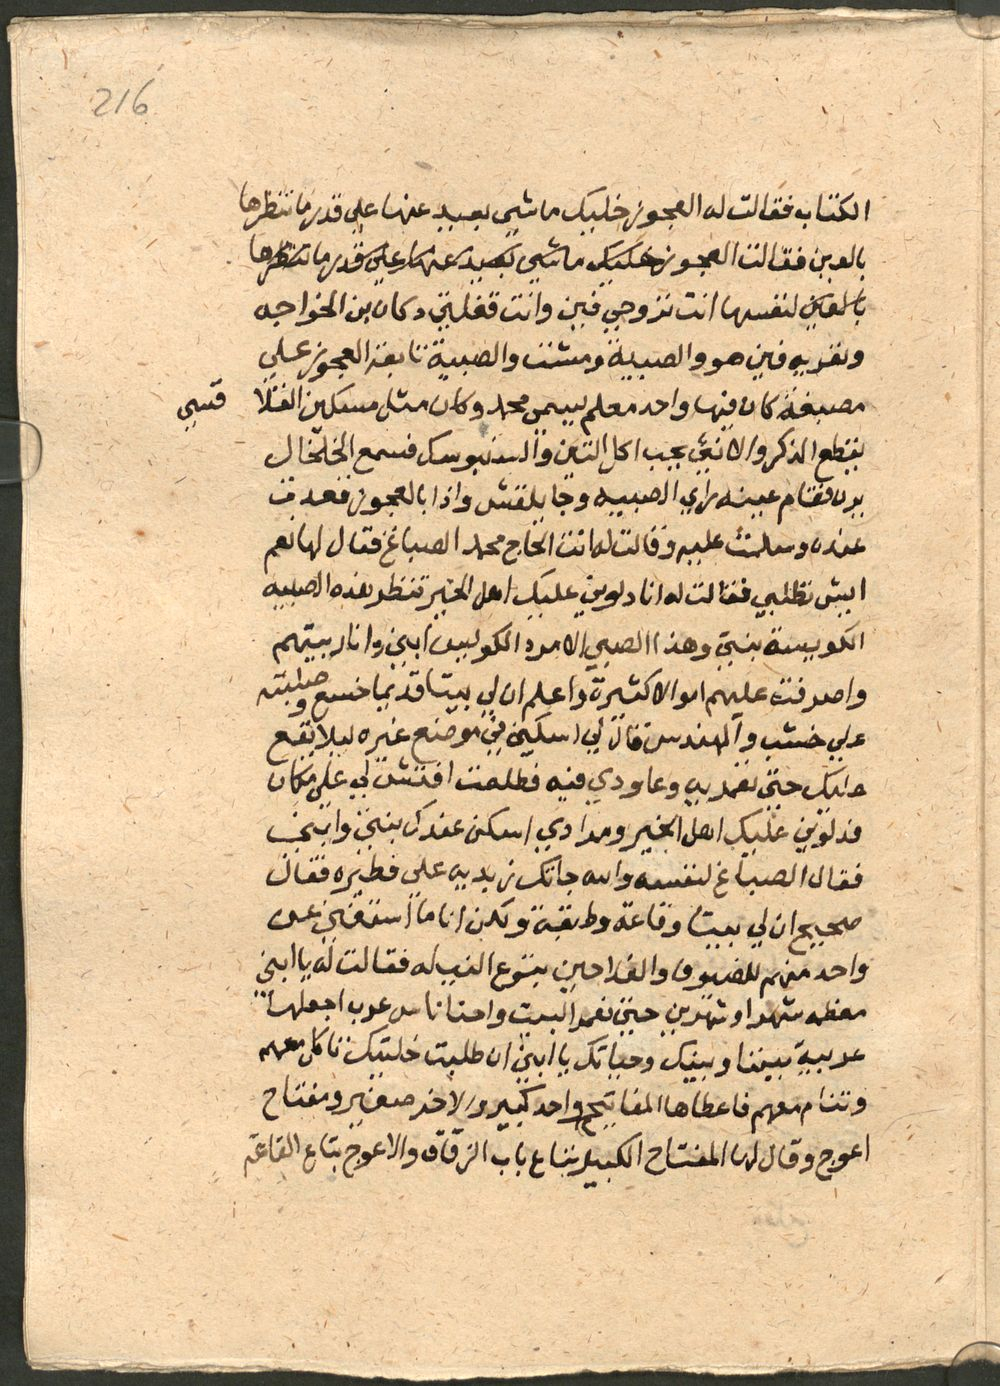 216
الكتاب فقالت له العجوز خليك ماشي بعيد عنها علي قدر ما تنظرها
بالعين فقالت العجوز خليك ماشي بعيد عنها علي قدر ما تنظرها
بالعين لنفسها انت تروحي فين وانت قفلتي دكان بن الخواجه
وتعريه فين هو والصبية ومشت والصبية تابعة العجوز علي
مصبغة كان فيها واحد معلم يسمي محمد وكان مثل سكين القتلا قسي
يقطع الذكر والانثي يحب اكل التين والسنبوسك فسمع الخلخال
يرن فقام عينه راي الصبيه وجا يلقش واذا بالعجوز قعدت
عنده وسلمت عليه وقالت له انت الحاج محمد الصباغ فقال لها نعم
ايش تطلبي فقالت له انا دلوني عليك اهل الخير تنظر هذه الصبيه
الكويسة بنتي وهذا الصبي الامرد الكويس ابني وانا ربيتهم
واصرفت عليهم اموالا كثيرة واعلم ان لي بيتا قديما خسع وصلبته
علي خشب والمهندس قال لي اسكني في موضع غيره ليلا يقع
عليك حتي تعمريه وعاودي فيه فطلعت افتش لي علي مكان
فدلوني عليك اهل الخير ومرادي اسكن عندك بنتي وابني
فقال الصباغ لنفسه والله جاتك زبديه علي فطيره فقال
صحيح ان لي بيتا وقاعة وطبقة ولكن انا ما استغني عن
واحد منهم للضيوف والفلاحين بتوع النيله فقالت له يا ابني
معظمه شهر او شهرين حتي نعمر البيت واحنا ناس غرب اجعلها
عربية بيننا وبينك وحياتك يا ابني ان طلبت خليتك تاكل معهم
وتنام معهم فاعطاها المفاتيح واحد كبير والاخر صغير ومفتاح
اعوج وقال لها المفتاح الكبير بتاع باب الزقاق والاعوج بتاع القاعة